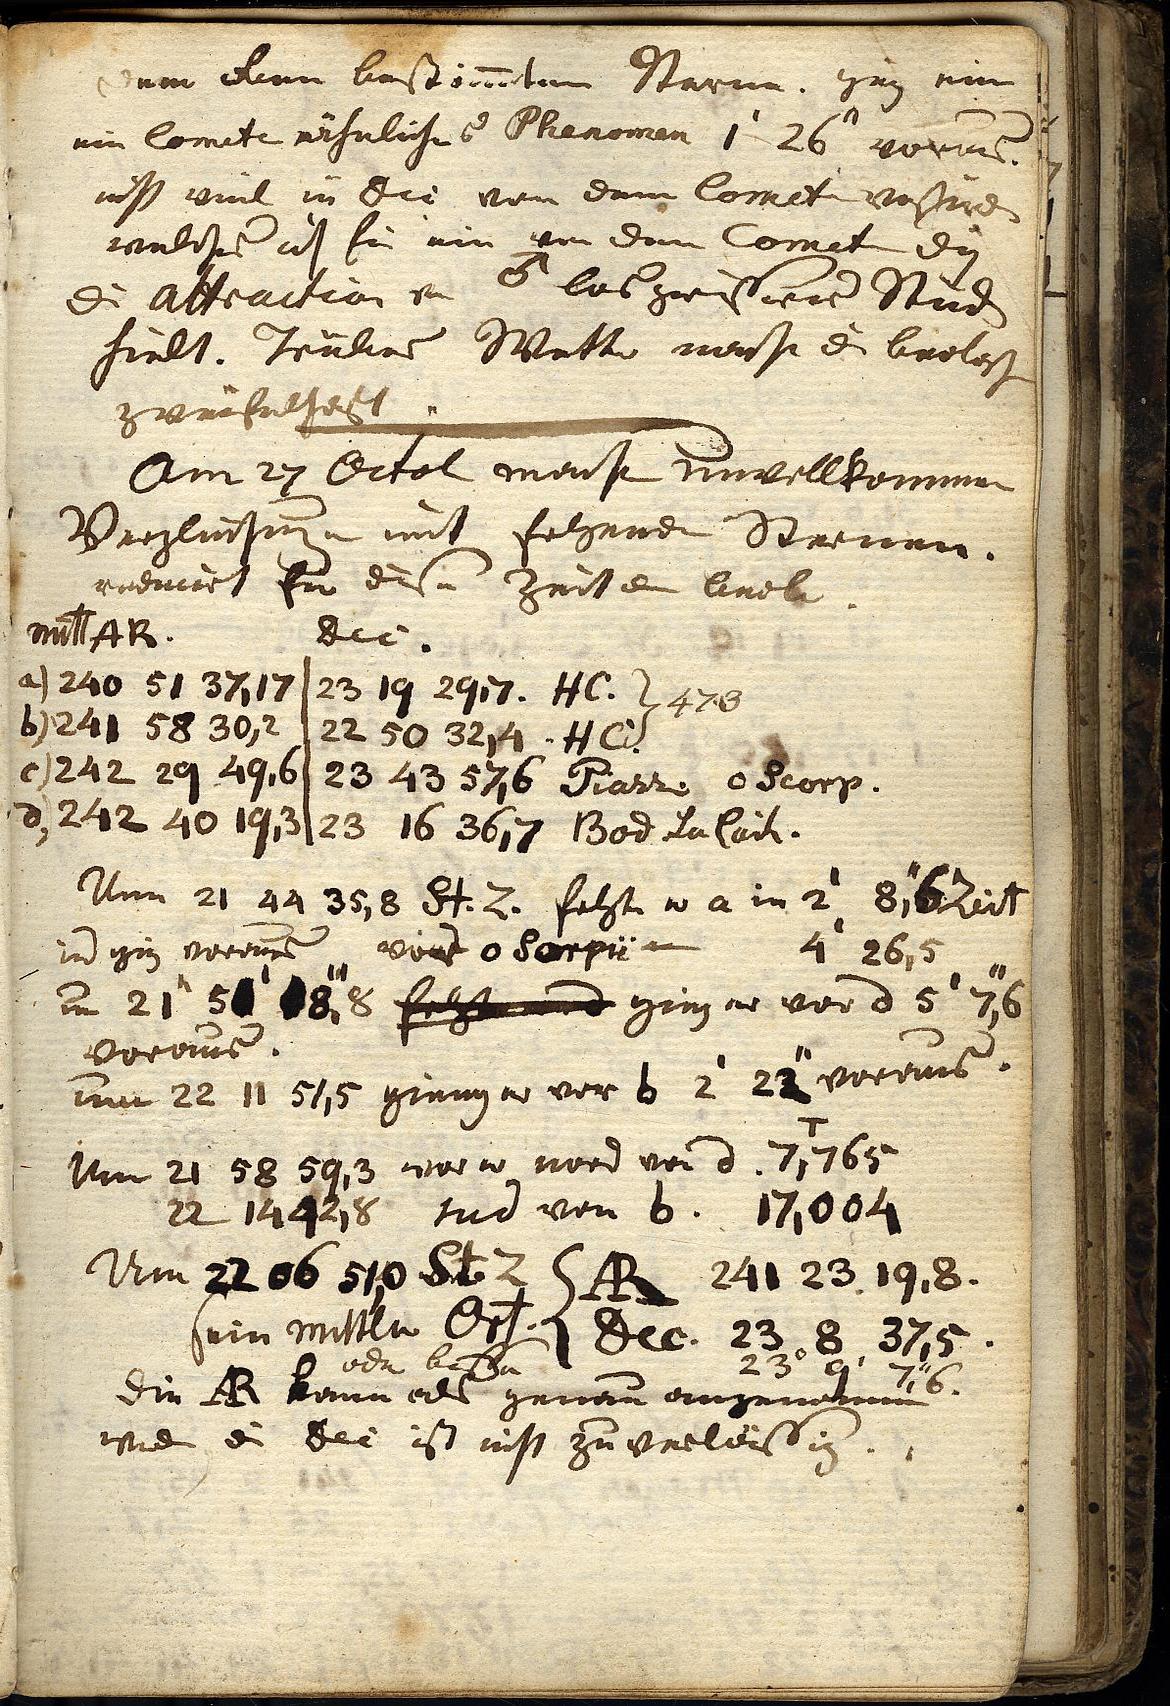 dem bestimten Sterne. ging ein
ein Comete ähnliches Phenomen 1' 26" voraus.
nicht viel in Dec von dem Comet
welches ich für ein von dem Comet
die attraction losgerissenes Stück
hielt. Trübes Wetter machte die beobach
zweifelhaft.
Am 27 Octob machte unvollkommene
Vergleichungen mit folgende Sternen.
reducirt für diese Zeit der beob.
mittl AR. Dec.
a) 240 51 37,17 | 23 19 29,7. HC. } 478
b) 241 58 30,2 | 22 50 32,4. HC.
c) 242 29 49,6 | 23 43 57,6 Piazzi o Scorp.
d) 242 40 19,3 | 23 16 36,7 Bod La Cail.
Um 21 44 35,8 St. Z. folgte er a in 2' 8",6 Zeit
und ging voraus vor o Scorpii 4' 26,5
um 21 5 8,8 ging er vor d 5' 7",6
voraus.
um 22 11 51,5 gieng er vor b 2' 22" voraus.
Um 21 58 59,3 war er nord von d. 7,765
22 14 42,8 sud von b. 17,004
Um 22 06 51,0 St Z { AR 241 23 19,8.
sein mittler Ort. } Dec. 23 8 37,5.
oder besser 23° 9' 7",6.
die AR kann als genau angenommen
werden die Dec ist nicht zuverlässig.